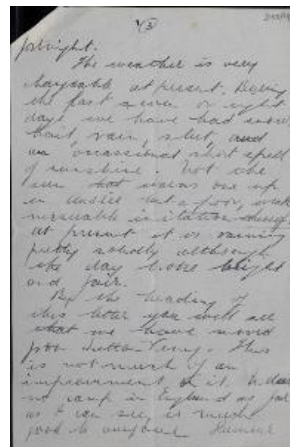 (3)
fortnight.
The weather is very
changeable at present. During
the past seven or eight
days we have had snow,
hail, rain, sleet, and
an occasional short spell
of sunshine. Not the
sun that warms one up
in Aussie but a poor, weak
miserable imitation
at present it is raining
pretty solidly although
the day broke bright
and fair.
By the heading of
this letter you will see
that we have moved
from Sutton-Veny. This
is not much of an
improvement on it. Indeed
no camp in England as far
as I can see, is much
good to anyone. Human